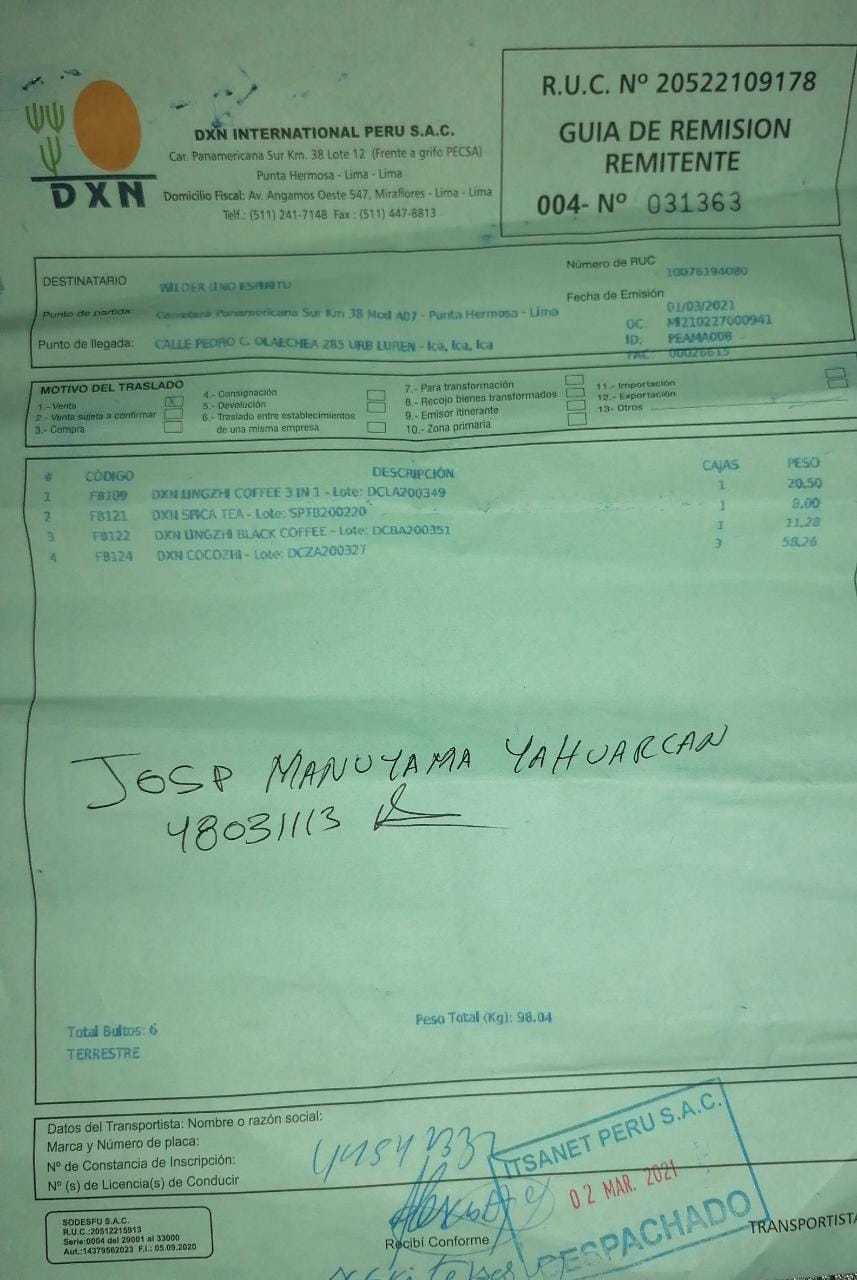 DXN
DXN INTERNATIONAL PERU S.A.C.
Car. Panamericana Sur Km. 38 Lote 12 (Frente a grifo PECSA)
Punta Hermosa - Lima - Lima
Domicilio Fiscal: Av. Angamos Oeste 547, Miraflores - Lima - Lima
Telf.: (511) 241-7148 Fax : (511) 447-8813
R.U.C. Nº 20522109178
GUIA DE REMISION
REMITENTE
004- Nº 031363
DESTINATARIO WILDER LINO ESPIRITU
Número de RUC 10076194080
Punto de partida: Carretera Panamericana Sur Km 38 Mod A07 - Punta Hermosa - Lima
Fecha de Emisión 01/03/2021
Punto de llegada: CALLE PEDRO C. OLAECHEA 285 URB LUREN - Ica, Ica, Ica
OC: MI210227000941
ID: PEAMA008
FAC: 00026615
MOTIVO DEL TRASLADO
1.- Venta X
2.- Venta sujeta a confirmar
3.- Compra
4.- Consignación
5.- Devolución
6.- Traslado entre establecimientos
de una misma empresa
7.- Para transformación
8.- Recojo bienes transformados
9.- Emisor itinerante
10.- Zona primaria
11.- Importación
12.- Exportación
13- Otros
# CÓDIGO DESCRIPCIÓN CAJAS PESO
1 FB109 DXN LINGZHI COFFEE 3 IN 1 - Lote: DCLA200349 1 20.50
2 FB121 DXN SPICA TEA - Lote: SPTB200220 1 8.00
3 FB122 DXN LINGZHI BLACK COFFEE - Lote: DCBA200351 1 11.28
4 FB124 DXN COCOZHI - Lote: DCZA200327 3 58.26
JOSP MANUYAMA YAHUARCAN
48031113
Total Bultos: 6
Peso Total (Kg): 98.04
TERRESTRE
Datos del Transportista: Nombre o razón social:
Marca y Número de placa:
Nº de Constancia de Inscripción:
Nº (s) de Licencia(s) de Conducir
ITSANET PERU S.A.C.
02 MAR. 2021
DESPACHADO
Recibí Conforme
TRANSPORTISTA
SODESFU S.A.C.
R.U.C.:20512215913
Serie:0004 del 29001 al 33000
Aut.:14379562023 F.I.: 05.09.2020